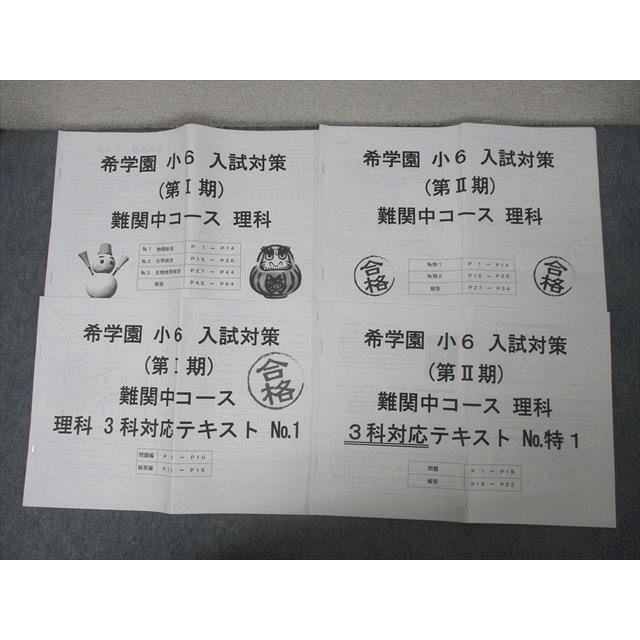 希学園 小6 入試対策
(第Ⅰ期)
難関中コース 理科
№1 物理総合 P 1 ～ P14
№2 化学総合 P15 ～ P26
№3 生物地学総合 P27 ～ P44
解答 P45 ～ P64
希学園 小6 入試対策
(第Ⅱ期)
難関中コース 理科
合格
№特1 P 1 ～ P14
№特2 P15 ～ P26
解答 P27 ～ P34
合格
希学園 小6 入試対策
(第Ⅰ期)
合格
難関中コース
理科 3科対応テキスト №1
問題編 P 1 ～ P10
解答編 P11 ～ P16
希学園 小6 入試対策
(第Ⅱ期)
難関中コース 理科
3科対応テキスト №特1
問題 P 1 ～ P18
解答 P19 ～ P22